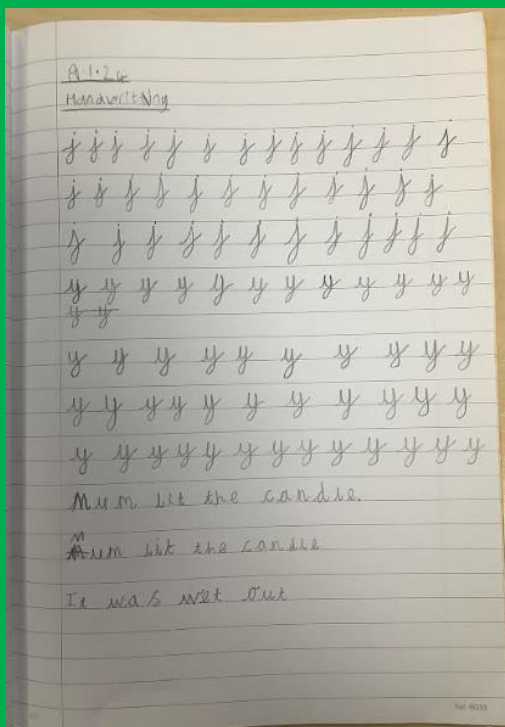 9.1.24
Handwriting
j j j j j j j j j j j j j j
j j j j j j j j j j j j
j j j j j j j j j j j j
y y y y y y y y y y y y
y y
y y y y y y y y y y
y y y y y y y y y y y
y y y y y y y y y y y y y
Mum Lit the candle.
Mum lit the candle
It was wet out